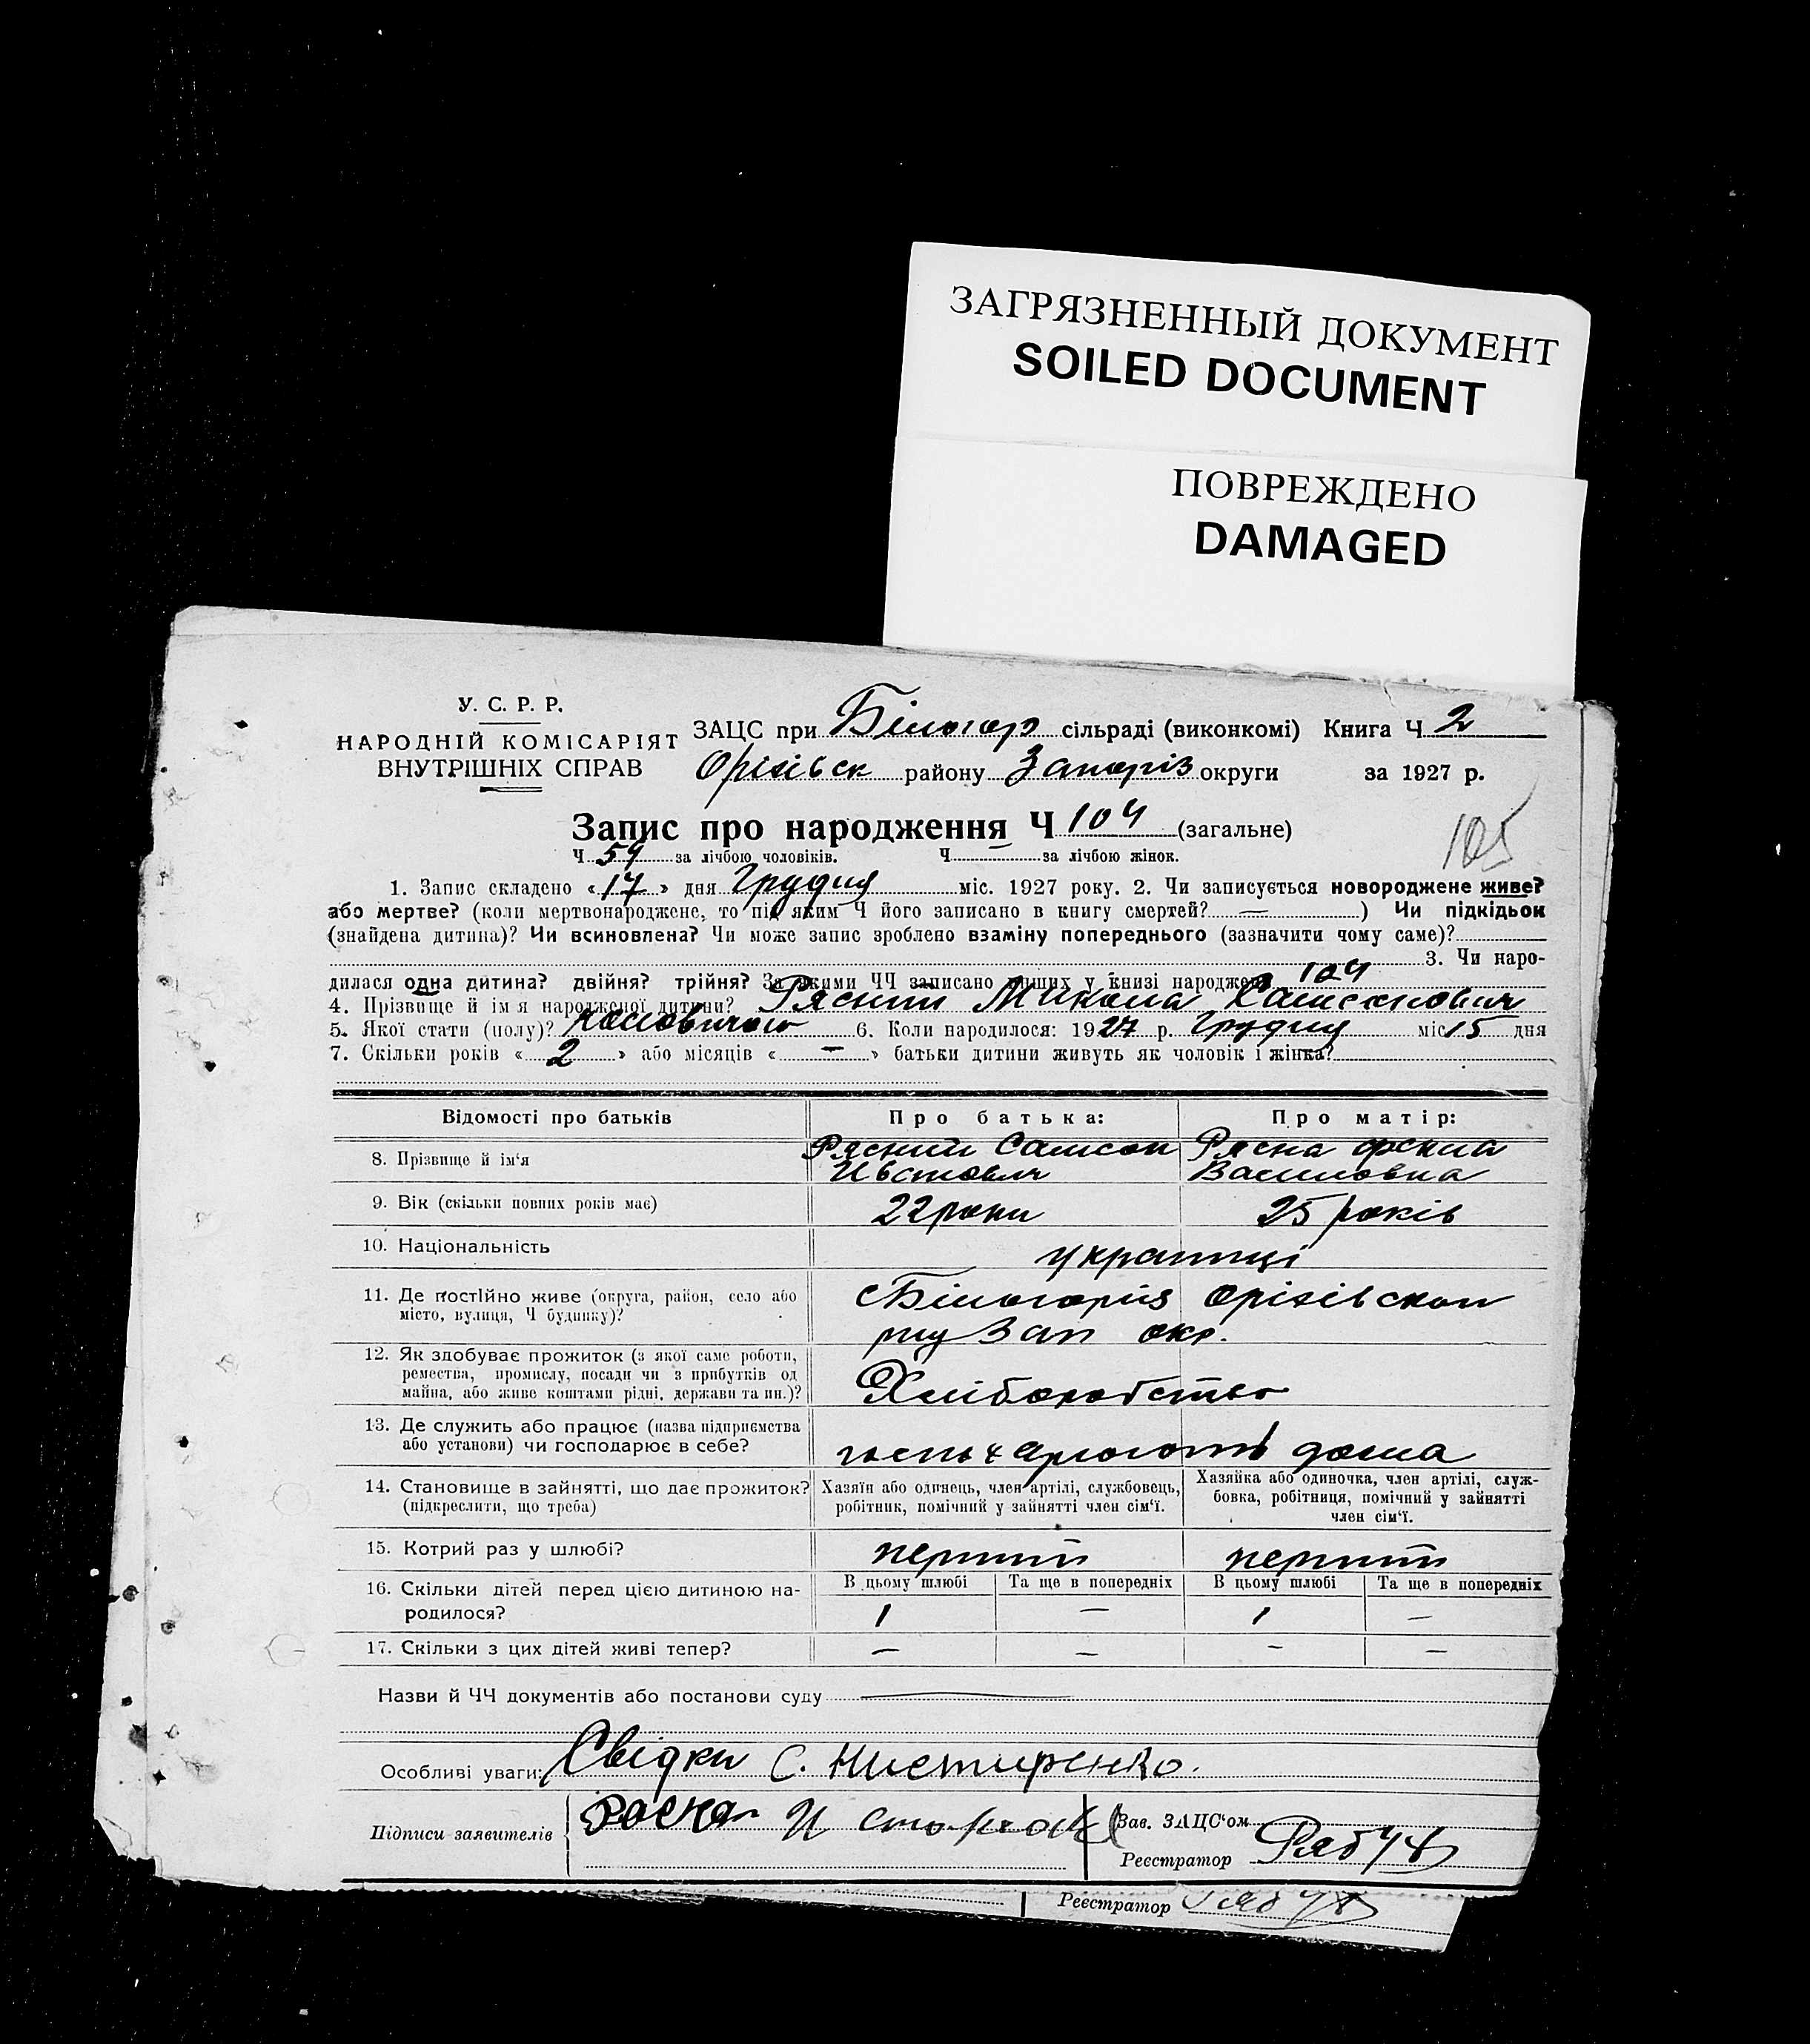 ЗАГРЯЗНЕННЫЙ ДОКУМЕНТ
SOILED DOCUMENT
ПОВРЕЖДЕНО
DAMAGED
У. С. Р. Р.
НАРОДНІЙ КОМІСАРІЯТ
ВНУТРІШНІХ СПРАВ
ЗАЦС при Білогор сільраді (виконкомі) Книга Ч 2
Оріхівськ району Запоріз округи за 1927 р.
Запис про народження Ч 104 (загальне)
105
Ч 54 за лічбою чоловіків. Ч за лічбою жінок.
1. Запис складено «17» дня Грудня міс. 1927 року. 2. Чи записується новороджене живе?
або мертве? (коли мертвонароджене, то під яким Ч його записано в книгу смертей? — ) Чи підкідьок
(знайдена дитина)? Чи всиновлена? Чи може запис зроблено взаміну попереднього (зазначити чому саме)?
3. Чи наро-
дилася одна дитина? двійня? трійня? За якими ЧЧ записано інших у книзі народжень 104
4. Прізвище й ім'я народженої дитини? Рясний Микола Самсонович
5. Якої стати (полу)? 6. Коли народилося: 1927 р. Грудня міс 15 дня
7. Скільки років « 2 » або місяців « — » батьки дитини живуть як чоловік і жінка?
Відомості про батьків Про батька: Про матір:
8. Прізвище й ім'я Рясний Самсон Рясна
Василовна
9. Вік (скільки повних років має) 22 роки 25 років
10. Національність українці
11. Де постійно живе (округа, район, село або
місто, вулиця, Ч будинку)? с Білогорія Оріхівскои
рну Зап окр.
12. Як здобуває прожиток (з якої саме роботи,
ремества, промислу, посади чи з прибутків од
майна, або живе коштами рідні, держави та ин.)? Хліборобство
13. Де служить або працює (назва підприємства
або установи) чи господарює в себе? дома
14. Становище в зайнятті, що дає прожиток?
(підкреслити, що треба)
Хазяїн або одинець, член артілі, службовець,
робітник, помічний у зайнятті член сім'ї.
Хазяйка або одиночка, член артілі, служ-
бовка, робітниця, помічний у зайнятті
член сім'ї.
15. Котрий раз у шлюбі? перший перший
16. Скільки дітей перед цією дитиною на-
родилося?
В цьому шлюбі Та ще в попередніх В цьому шлюбі Та ще в попередніх
1 — 1 —
17. Скільки з цих дітей живі тепер? — — — —
Назви й ЧЧ документів або постанови суду
Особливі уваги: Свідки С. Нистиренко.
Підписи заявителів
Зав. ЗАЦС'ом
Реєстратор
Реєстратор